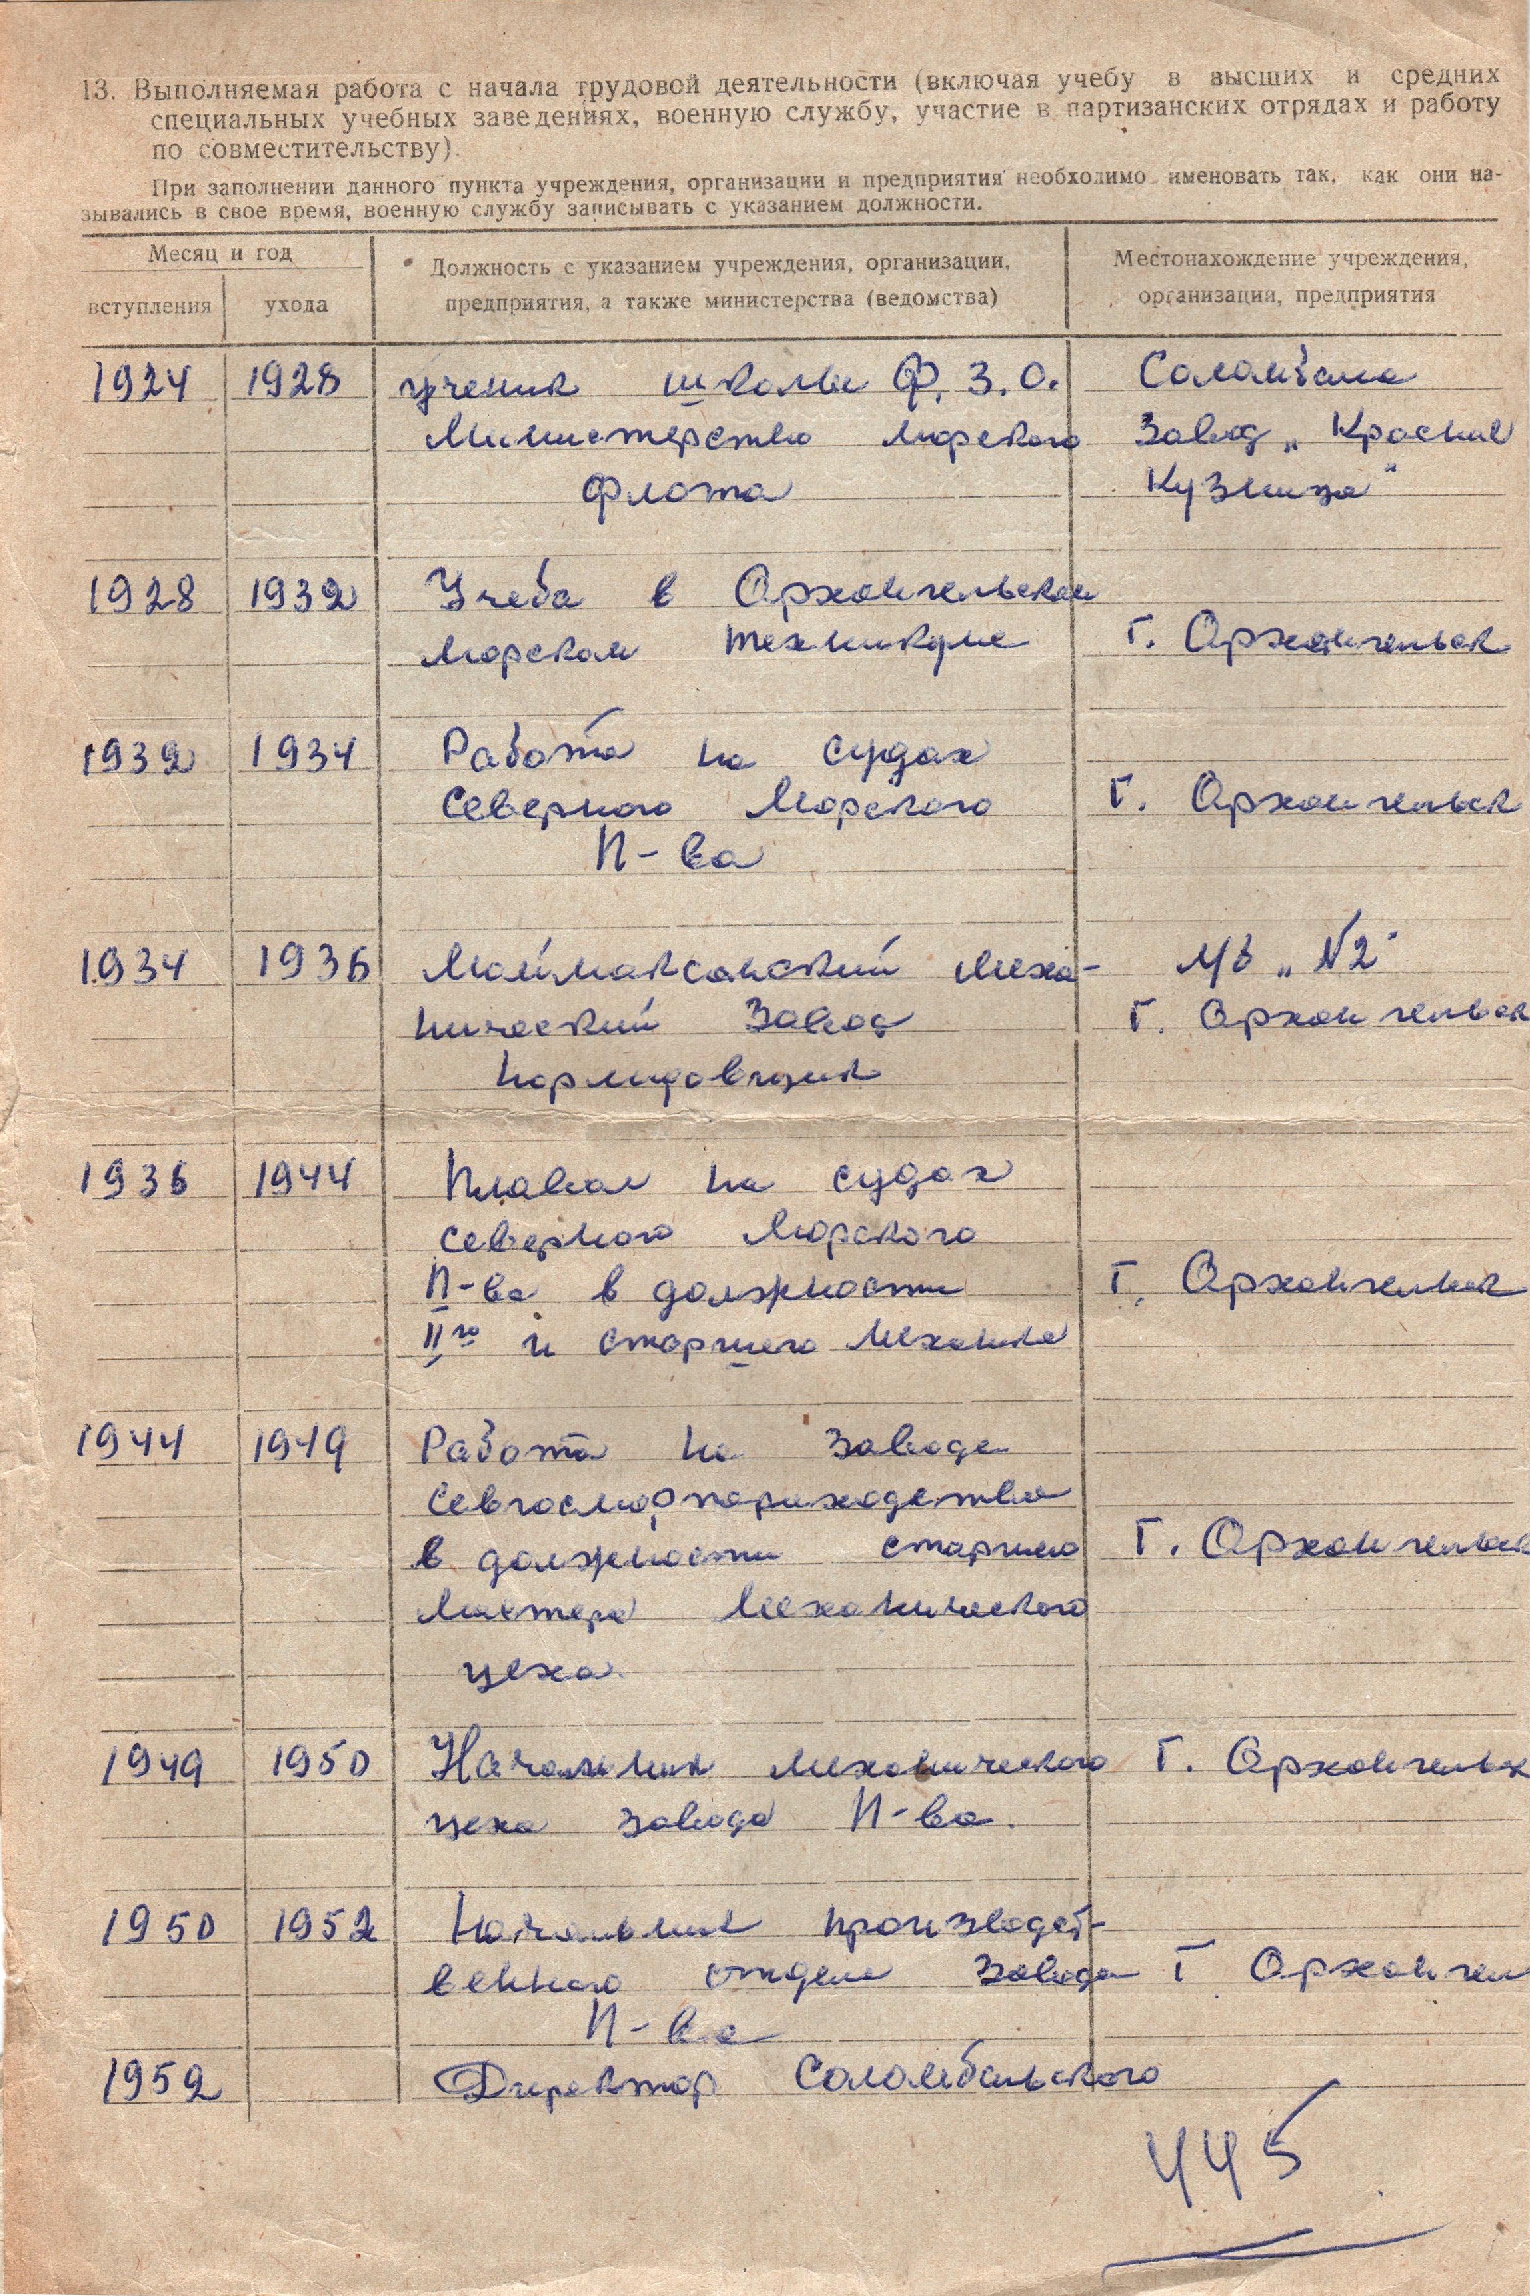 13. Выполняемая работа с начала трудовой деятельности (включая учебу в высших и средних
специальных учебных заведениях, военную службу, участие в партизанских отрядах и работу
по совместительству).
При заполнении данного пункта учреждения, организации и предприятия необходимо именовать так, как они на-
зывались в свое время, военную службу записывать с указанием должности.
Месяц и год
вступления
ухода
Должность с указанием учреждения, организации,
предприятия, а также министерства (ведомства)
Местонахождение учреждения,
организации, предприятия
1924 1928 ученик школы Ф.З.О. Соломбала
Министерство Морского Завод „Красная
Флота Кузница"
1928 1932 Учеба в Архангельском
Морском техникуме г. Архангельск
1932 1934 Работа на судах
Северного Морского г. Архангельск
П-ва
1934 1936 Маймаксанский Меха- М/З „N2"
нический Завод г. Архангельск
нормировщик
1936 1944 Плавал на судах
Северного Морского
П-ва в должности г. Архангельск
IIго и старшего механика
1944 1949 Работа на Заводе
Севгосморпароходства
в должности старшего г. Архангельск
Мастера Механического
цеха.
1949 1950 Начальник механического г. Архангельск
цеха завода П-ва.
1950 1952 Начальник производст-
венного отдела Завода г Архангел
П-ва
1952 Директор Соломбальского
445